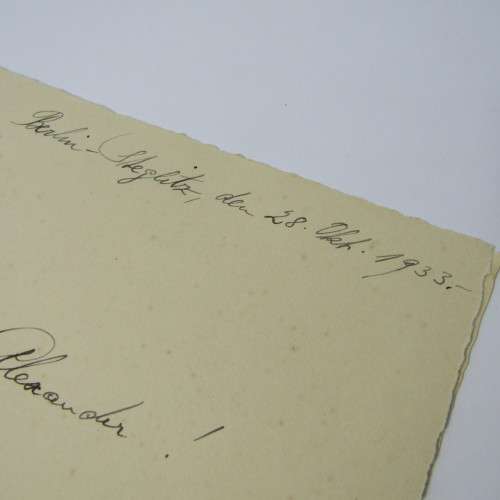 Berlin-Steglitz, den 28. Okt. 1933.-
Alexander!